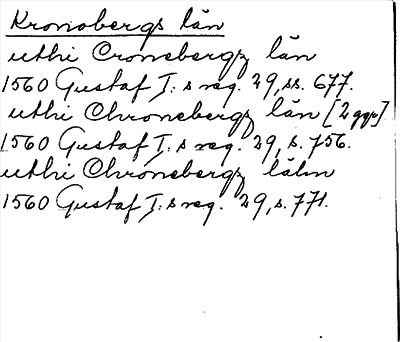 Kronobergs län
uthi Cronebergz län
1560 Gustaf I:s reg. 29, ss. 677.
uthi Chronebergz län [2 ggr]
1560 Gustaf I:s reg. 29, s. 756.
uthi Chronebergz lähn
1560 Gustaf I:s reg. 29, s. 771.